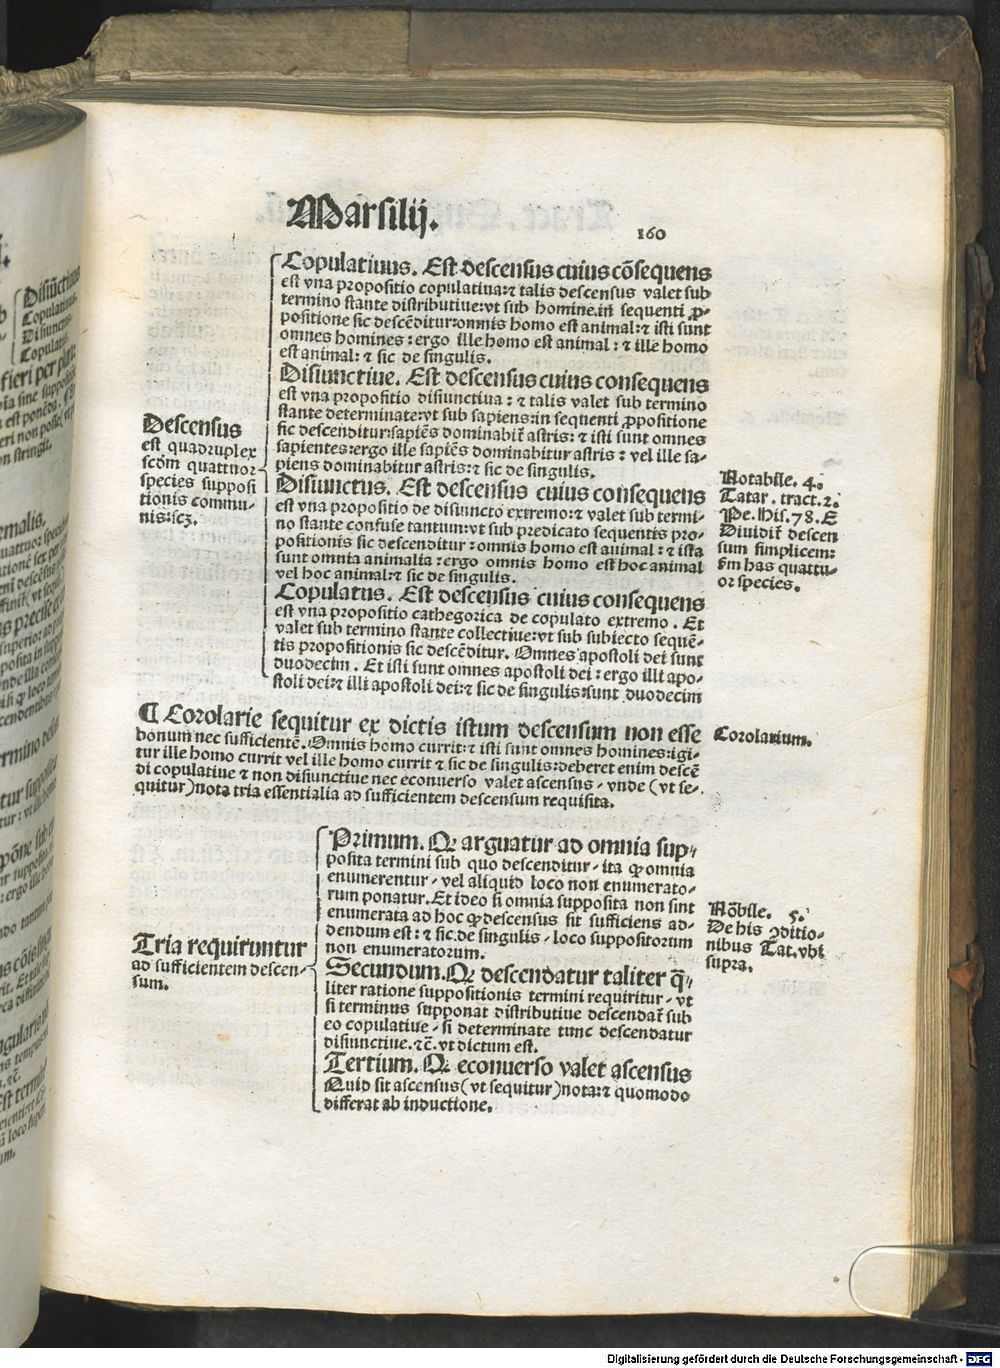 Marsilij.
160
Descensus
est quadruplex
scḋm quattuor
species supposi
tionis commu-
nis:scꝫ.
Copulatiuus. Est descensus cuius cōsequens
est vna propositio copulatiua:⁊ talis descensus valet sub
termino stante distributiue:vt sub homine.in sequenti ꝓ-
positione sic descēditur:omnis homo est animal:⁊ isti sunt
omnes homines: ergo ille homo est animal: ⁊ ille homo
est animal: ⁊ sic de singulis.
Disiunctiue. Est descensus cuius consequens
est vna propositio disiunctiua: ⁊ talis valet sub termino
stante determinate:vt sub sapiens:in sequenti ꝓpositione
sic descenditur:sapiēs dominabit᷑ astris: ⁊ isti sunt omnes
sapientes:ergo ille sapiēs dominabitur astris: vel ille sa-
piens dominabitur astris:⁊ sic de singulis.
Disiunctus. Est descensus cuius consequens
est vna propositio de disiuncto extremo:⁊ valet sub termi-
no stante confuse tantum:vt sub predicato sequentis pro-
positionis sic descenditur: omnis homo est animal: ⁊ ista
sunt omnia animalia: ergo omnis homo est hoc animal
vel hoc animal:⁊ sic de singulis.
Copulatus. Est descensus cuius consequens
est vna propositio cathegorica de copulato extremo. Et
valet sub termino stante collectiue:vt sub subiecto sequē-
tis propositionis sic descēditur. Omnes apostoli dei sunt
duodecim. Et isti sunt omnes apostoli dei: ergo illi apo-
stoli dei:⁊ illi apostoli dei:⁊ sic de singulis:sunt duodecim
Notabile. 4.
Tatar. tract.2.
Pe. His. 78. E
Diuidit᷑ descen
sum simplicem:
ẜm has quattu-
or species.
¶ Corolarie sequitur ex dictis istum descensum non esse
bonum nec sufficientē. Omnis homo currit:⁊ isti sunt omnes homines:igi-
tur ille homo currit vel ille homo currit ⁊ sic de singulis:deberet enim descē
di copulatiue ⁊ non disiunctiue nec econuerso valet ascensus - vnde (vt se-
quitur) nota tria essentialia ad sufficientem descensum requisita.
Corolarium.
Tria requiruntur
ad sufficientem descen-
sum.
Primum. Qꝫ arguatur ad omnia sup-
posita termini sub quo descenditur - ita ꝙ omnia
enumerentur - vel aliquid loco non enumerato-
rum ponatur. Et ideo si omnia supposita non sint
enumerata ad hoc ꝙ descensus sit sufficiens ad-
dendum est: ⁊ sic de singulis - loco suppositorum
non enumeratorum.
Secundum. Qꝫ descendatur taliter q̄-
liter ratione suppositionis termini requiritur - vt
si terminus supponat distributiue descendat᷑ sub
eo copulatiue - si determinate tunc descendatur
disiunctiue.⁊c̄. vt dictum est.
Tertium. Qꝫ econuerso valet ascensus
Quid sit ascensus (vt sequitur) nota:⁊ quomodo
differat ab inductione.
Nōbile. 5.
De his ꝯditio-
nibus Tat. vbi
supra.
Digitalisierung gefördert durch die Deutsche Forschungsgemeinschaft - DFG